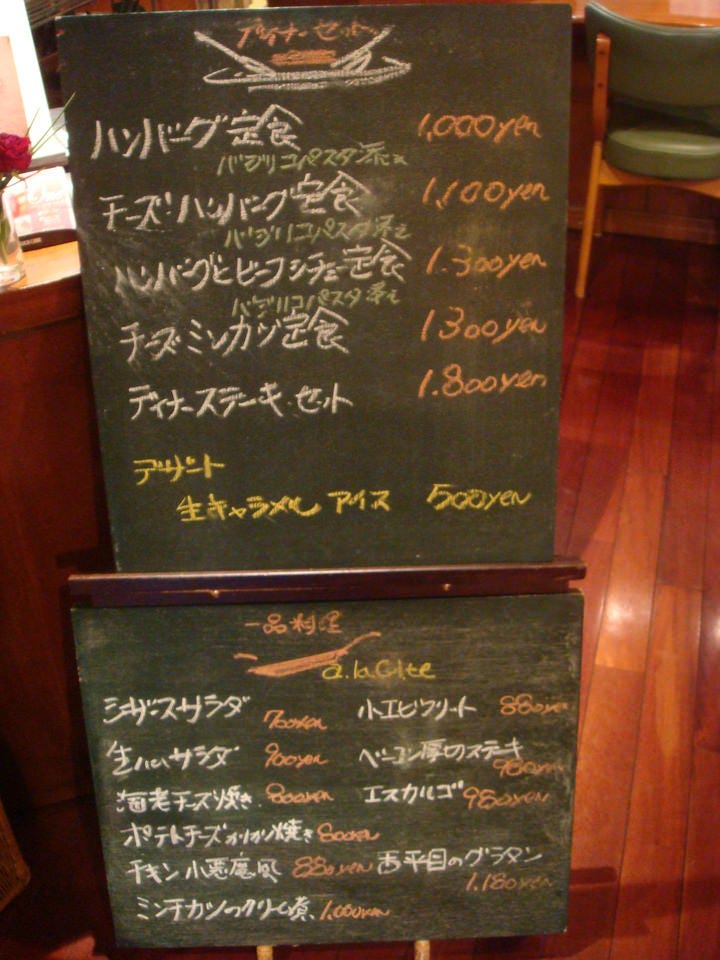 ディナーセット
ハンバーグ定食 1,000yen
バジリコパスタ添え
チーズ・ハンバーグ定食 1,100yen
バジリコパスタ添え
ハンバーグとビーフシチュー定食 1.300yen
バジリコパスタ添え
チーズミンカツ定食 1300yen
ディナーステーキ・セット 1.800yen
デザート
生キャラメル アイス 500yen
一品料理
a.la.Carte
シーザースサラダ 700yen
小エビフリート 880yen
生ハムサラダ 900yen
ベーコン厚切ステーキ
980yen
海老チーズ焼き 800yen
エスカルゴ 980yen
ポテトチーズカリカリ焼き 800yen
チキン小悪魔風 880yen
舌平目のグラタン
1,180yen
ミンチカツのクリーム煮 1,000yen